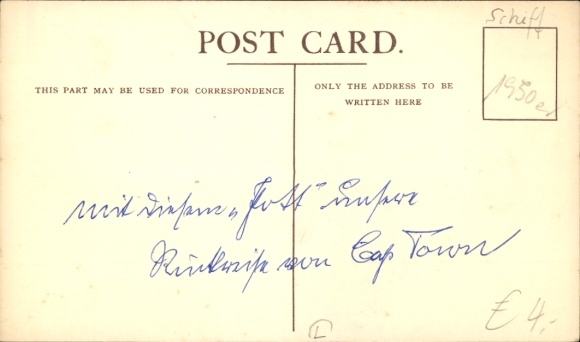 Schiff
POST CARD.
1950er
THIS PART MAY BE USED FOR CORRESPONDENCE
ONLY THE ADDRESS TO BE
WRITTEN HERE
mit diesem „Pott“ unsere
Rückreise von Cap Town
€ 4,-
L